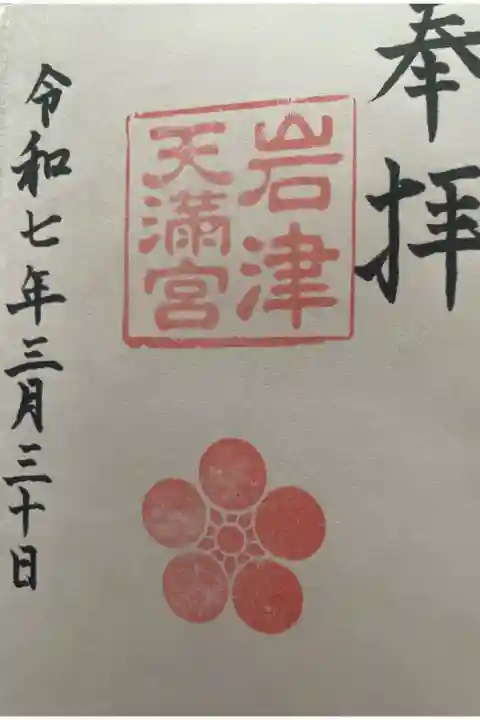 奉拝
岩津
天満宮
令和七年三月三十日